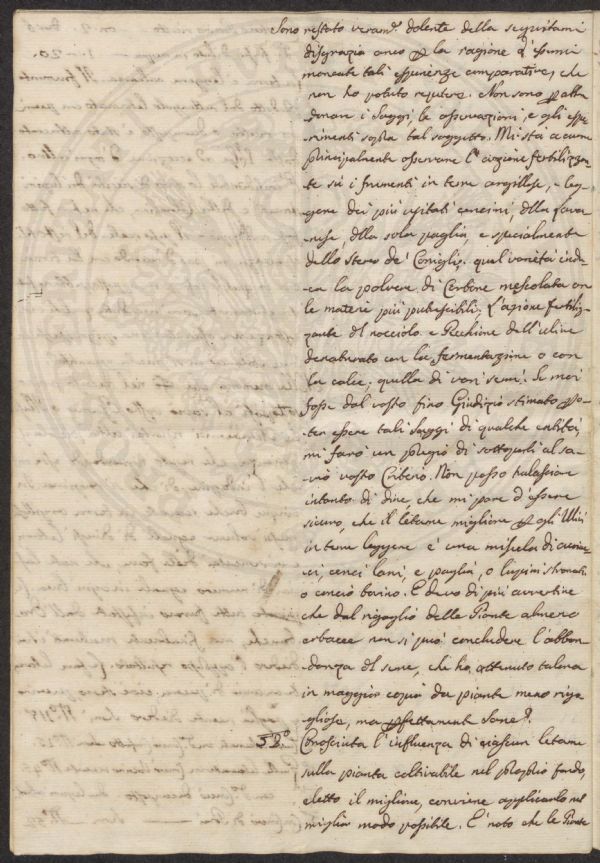 Sono restato veram.e dolente della seguitami
disgrazia anco p la ragione d'essermi
mancate tali esperienze comparative, che
non ho potuto repetere. Non sono p abban
donare i saggj, le osservazioni, e gli espe
rimenti sopra tal soggetto. Mi sta a cuore
principalmente osservare l'azione fertilizzan
te su i frumenti in terre argillose, e leg
gere dei più usitati concini, della
della sola paglia, e specialmente
dello sterco de' Conigli; qual varietà indu
ca la polvere di Carbone mescolata con
le materie più putrescibili; L'azione fertiliz
zante del nocciolo e Pecchione dell'ulive
con la fermentazione o con
la calce; quella di varj semi. Se mai
fosse dal vostro fino Giudizio stimato po
ter essere tali saggj di qualche entità,
mi farò un pregio di sottoporli al sa
vio vostro Criterio. Non posso tralasciare
intanto di dire, che mi pare d'essere
sicuro, che il letame migliore p gli Ulivi
in terre leggere è una miscela di
cenci lani, e paglia, o lupini
o concio bovino. E devo di più avvertire
che dal rigoglio delle Piante almeno
erbacee non si può concludere l'abbon
danza del seme, che ho ottenuto talora
in maggior copia da piante meno rigo
gliose, ma pfettamente sane.
58.° Conosciuta l'influenza di ciascun letame
sulla pianta coltivabile nel proprio fondo,
eletto il migliore, conviene applicarlo nel
miglior modo possibile. È noto che le Piante